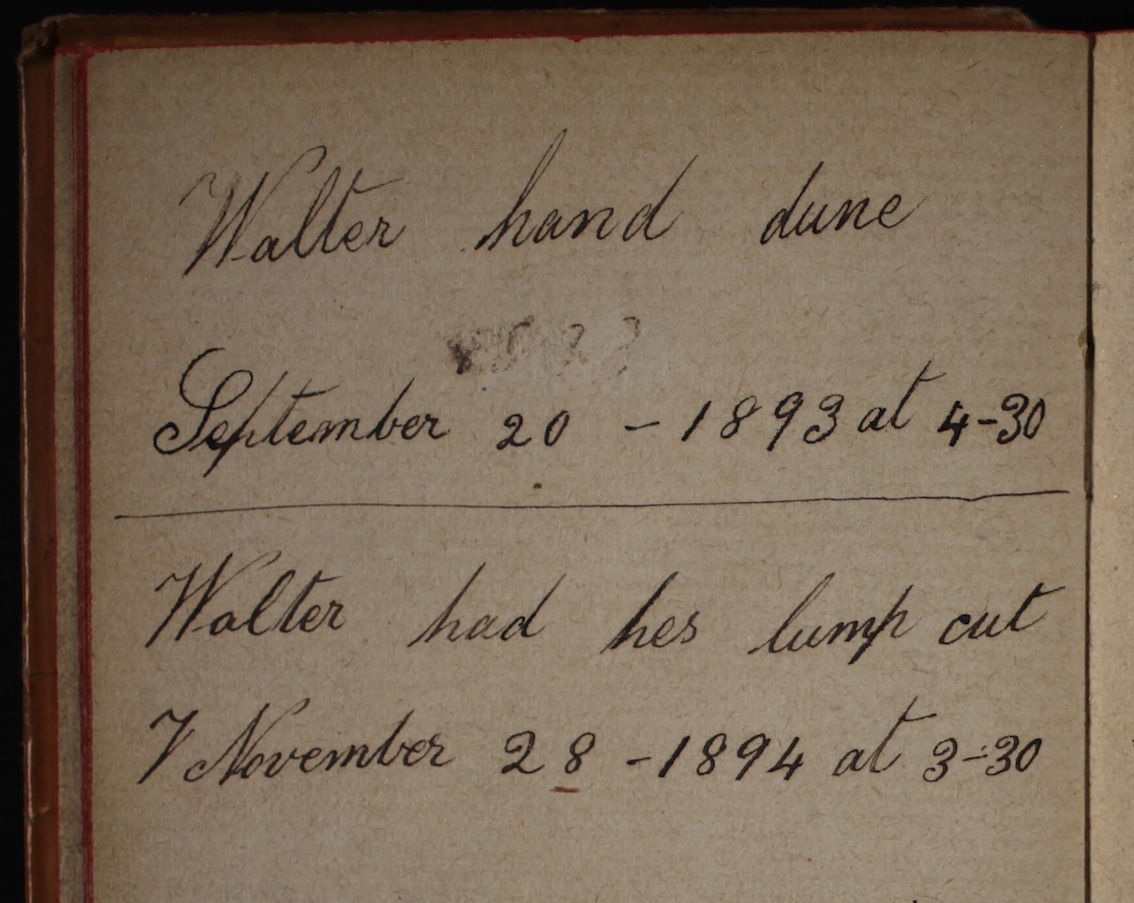 Walter hand dune
September 20 - 1893 at 4-30
Walter had hes lump cut
November 28 - 1894 at 3-30